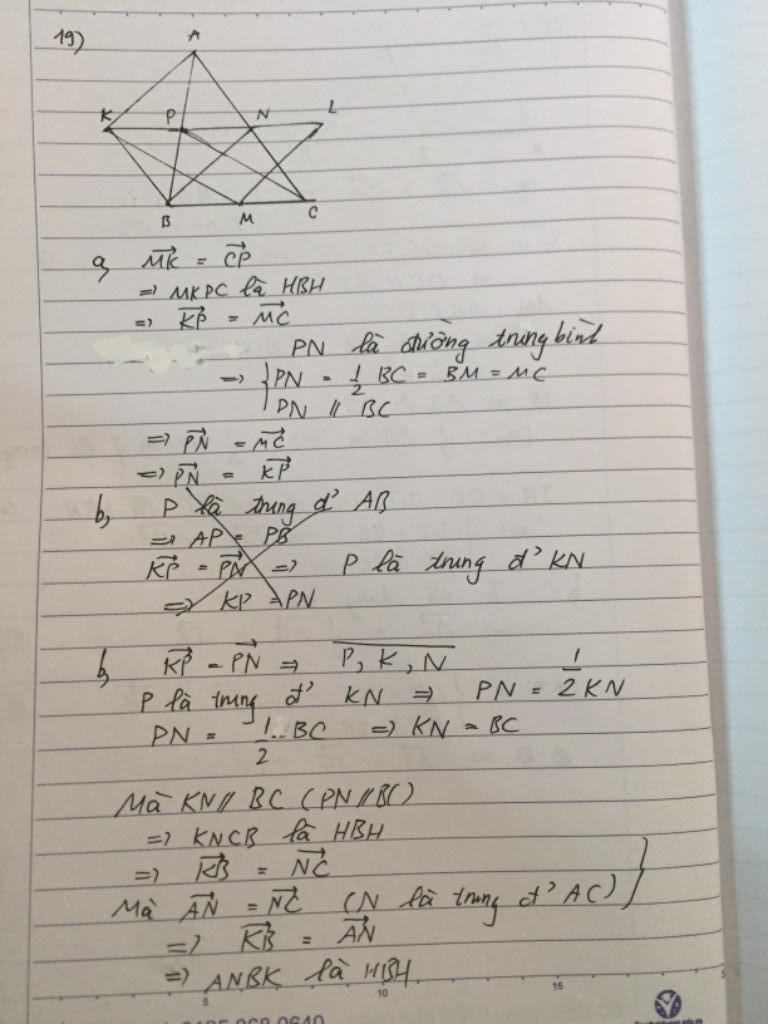 19)
A
K P N L
B M C
a, \overrightarrow{MK} = \overrightarrow{CP}
=> MKPC là HBH
=> \overrightarrow{KP} = \overrightarrow{MC}
PN là đường trung bình
=> { PN = \frac{1}{2} BC = BM = MC
PN // BC
=> \overrightarrow{PN} = \overrightarrow{MC}
=> \overrightarrow{PN} = \overrightarrow{KP}
b, P là trung đ' AB
=> AP = PB
\overrightarrow{KP} = \overrightarrow{PN} => P là trung đ' KN
=> KP = PN
b, \overrightarrow{KP} = \overrightarrow{PN} => \overline{P, K, N}
P là trung đ' KN => PN = \frac{1}{2} KN
PN = \frac{1}{2} BC => KN = BC
Mà KN // BC (PN // BC)
=> KNCB là HBH
=> \overrightarrow{KB} = \overrightarrow{NC}
Mà \overrightarrow{AN} = \overrightarrow{NC} (N là trung đ' AC) }
=> \overrightarrow{KB} = \overrightarrow{AN}
=> ANBK là HBH
5 10 15